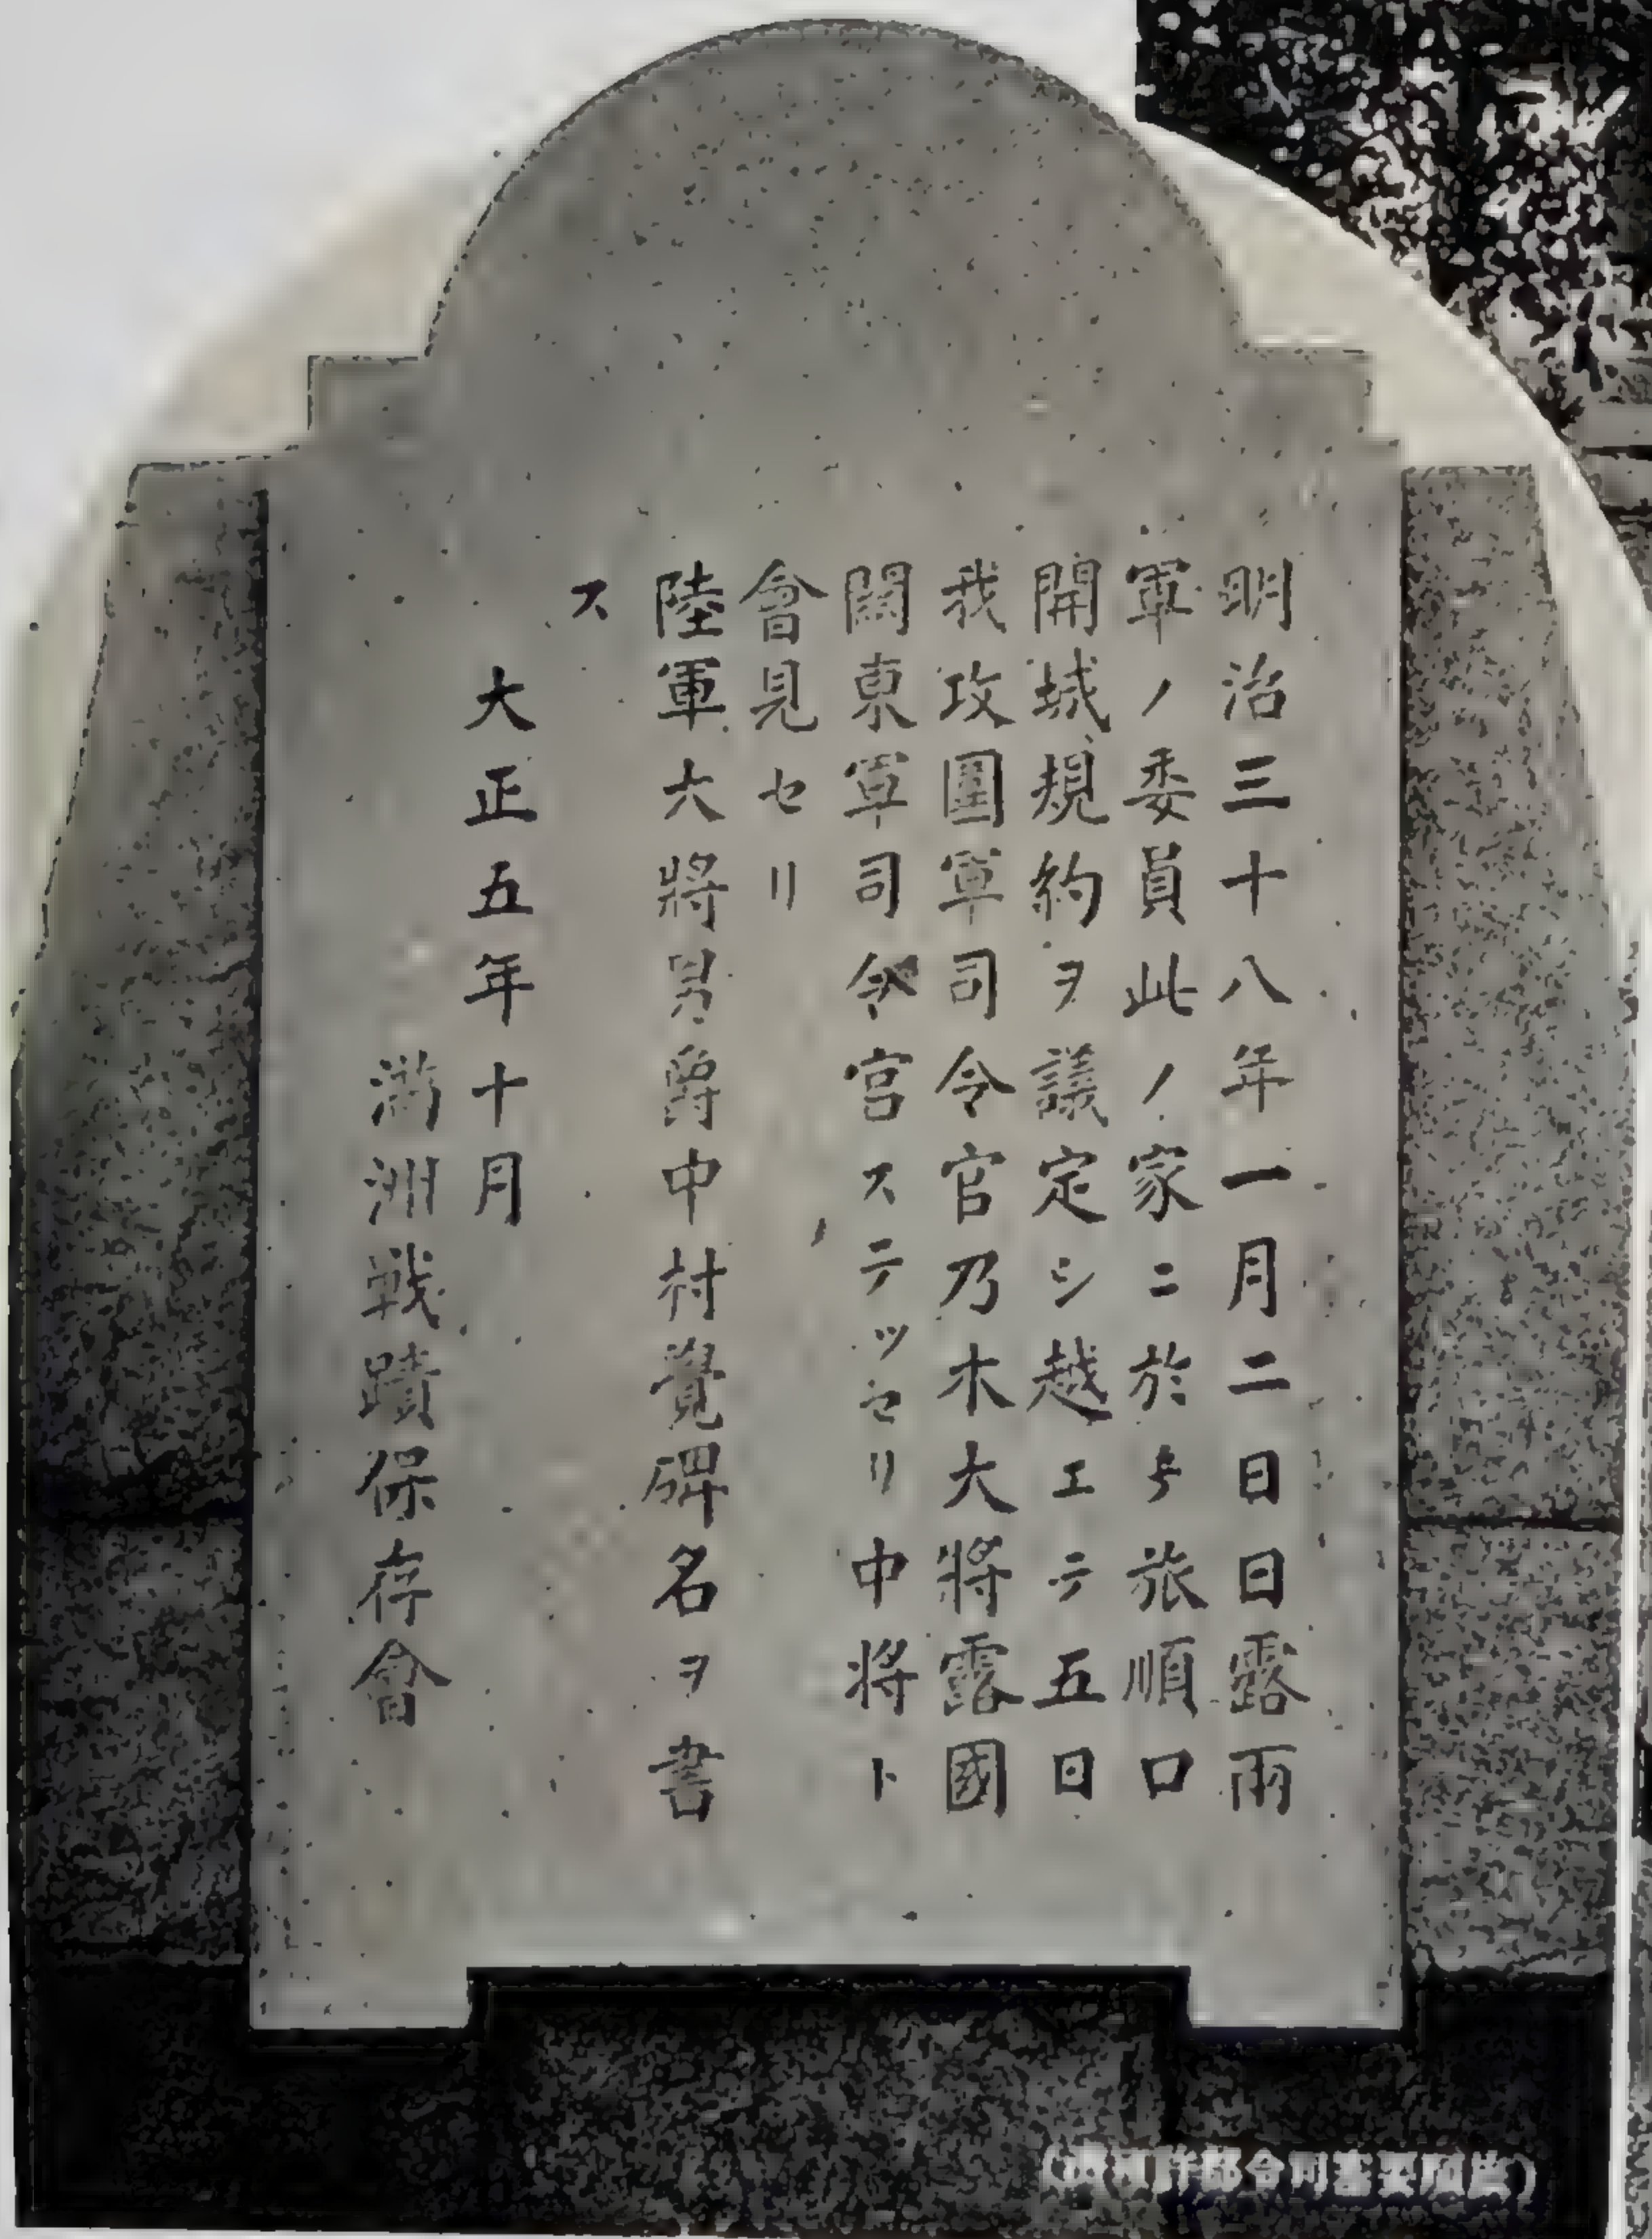 明治三十八年一月二日日露兩
軍ノ委員此ノ家ニ於テ旅順口
開城規約ヲ議定シ越エテ五日
我攻圍軍司令官乃木大將露國
關東軍司令官ステツセリ中将ト
會見セリ
陸軍大將男爵中村覺碑名ヲ書
ス
大正五年十月
滿洲戰蹟保存會